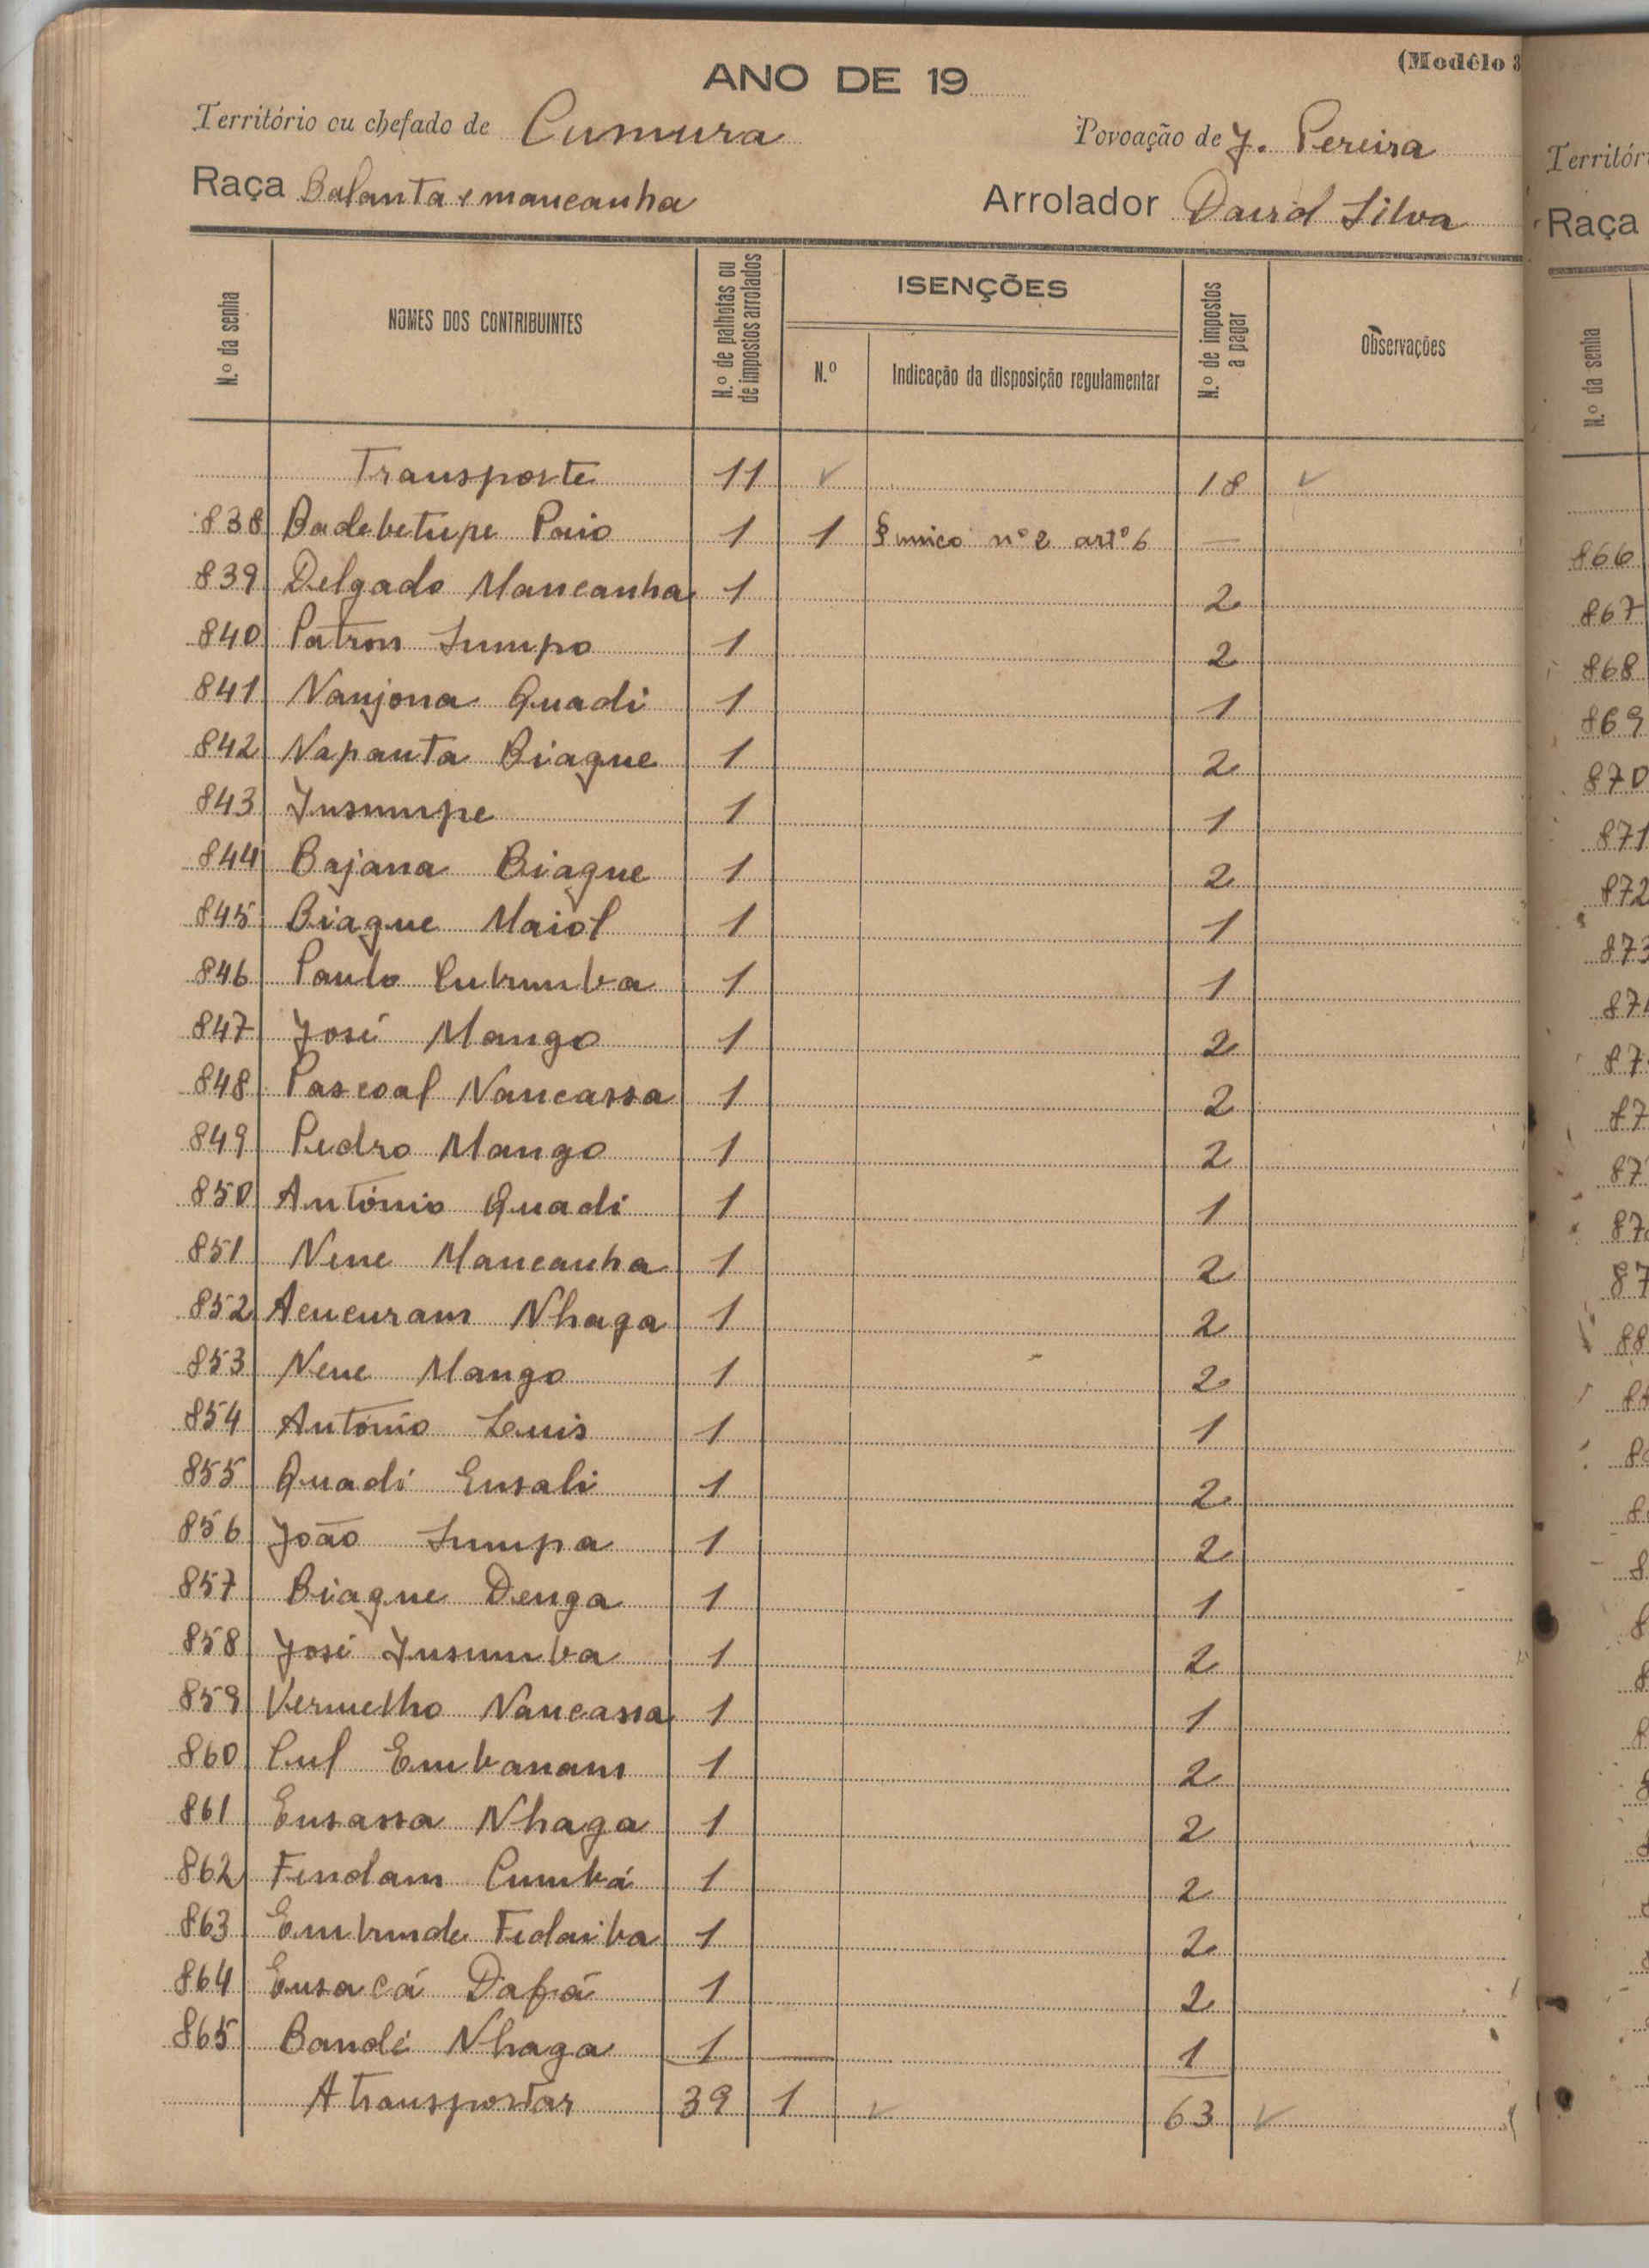 (Modêlo 3
ANO DE 19
Território ou chefado de Cumura
Povoação de J. Pereira
Raça Balanta e mancanha
Arrolador David Silva
N.º da senha
NOMES DOS CONTRIBUINTES
N.º de palhotas ou de impostos arrolados
ISENÇÕES
N.º
Indicação da disposição regulamentar
N.º de impostos a pagar
Observações
Transporte 11 18
838 Badebetupe Paio 1 1 § unico nº 2 artº 6 —
839 Delgado Mancanha 1 2
840 Patron Sumpo 1 2
841 Nanjona Quadi 1 1
842 Napanta Biague 1 2
843 Jusumpe 1 1
844 Bajana Biague 1 2
845 Biague Maiol 1 1
846 Paulo Cubumba 1 1
847 José Mango 1 2
848 Pascoal Nancassa 1 2
849 Pedro Mango 1 2
850 António Quadi 1 1
851 Nene Mancanha 1 2
852 Nhaga 1 2
853 Nene Mango 1 2
854 António Luis 1 1
855 Quadi Ensali 1 2
856 João Sumpa 1 2
857 Biague Denga 1 1
858 José Jusumba 1 2
859 Vermelho Nancassa 1 1
860 Cul Embanam 1 2
861 Ensassa Nhaga 1 2
862 Findam Cumbá 1 2
863 Embunde 1 2
864 Ensacá Dafá 1 2
865 Bandé Nhaga 1 1
A transportar 39 1 63
Territór
Raça
N.º da senha
866
867
868
869
870
871
872
873